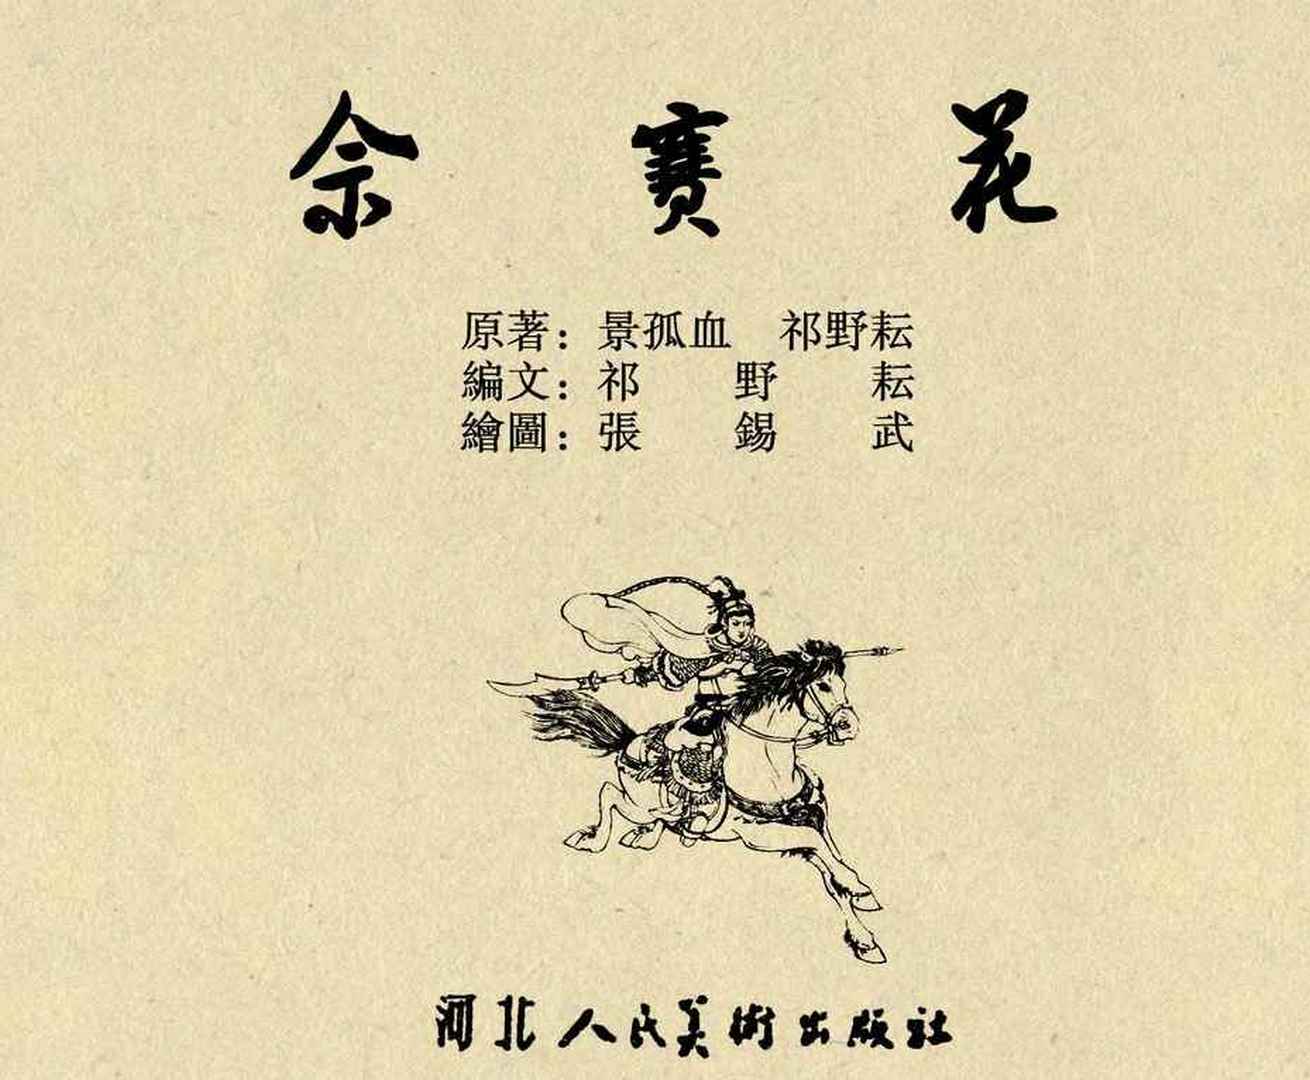 佘賽花
原著：景孤血　祁野耘
編文：祁野耘
繪圖：張錫武
河北人民美術出版社